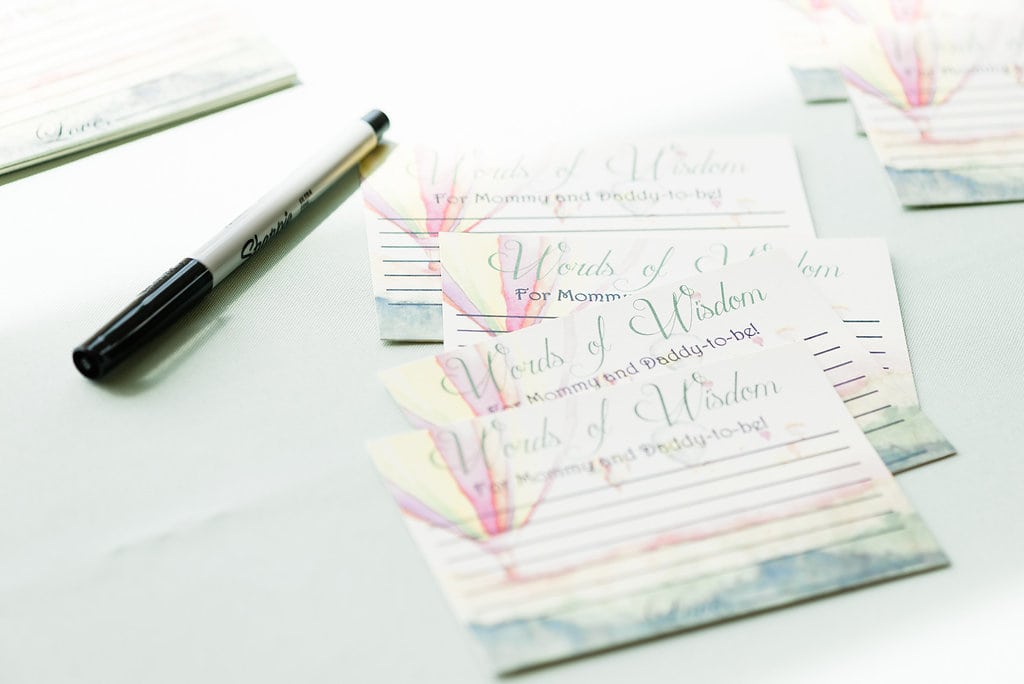 Love,
Sharpie
Words of Wisdom
For Mommy and Daddy-to-be!
Words of Wisdom
For Mommy
Words of Wisdom
For Mommy and Daddy-to-be!
Words of Wisdom
For Mommy and Daddy-to-be!